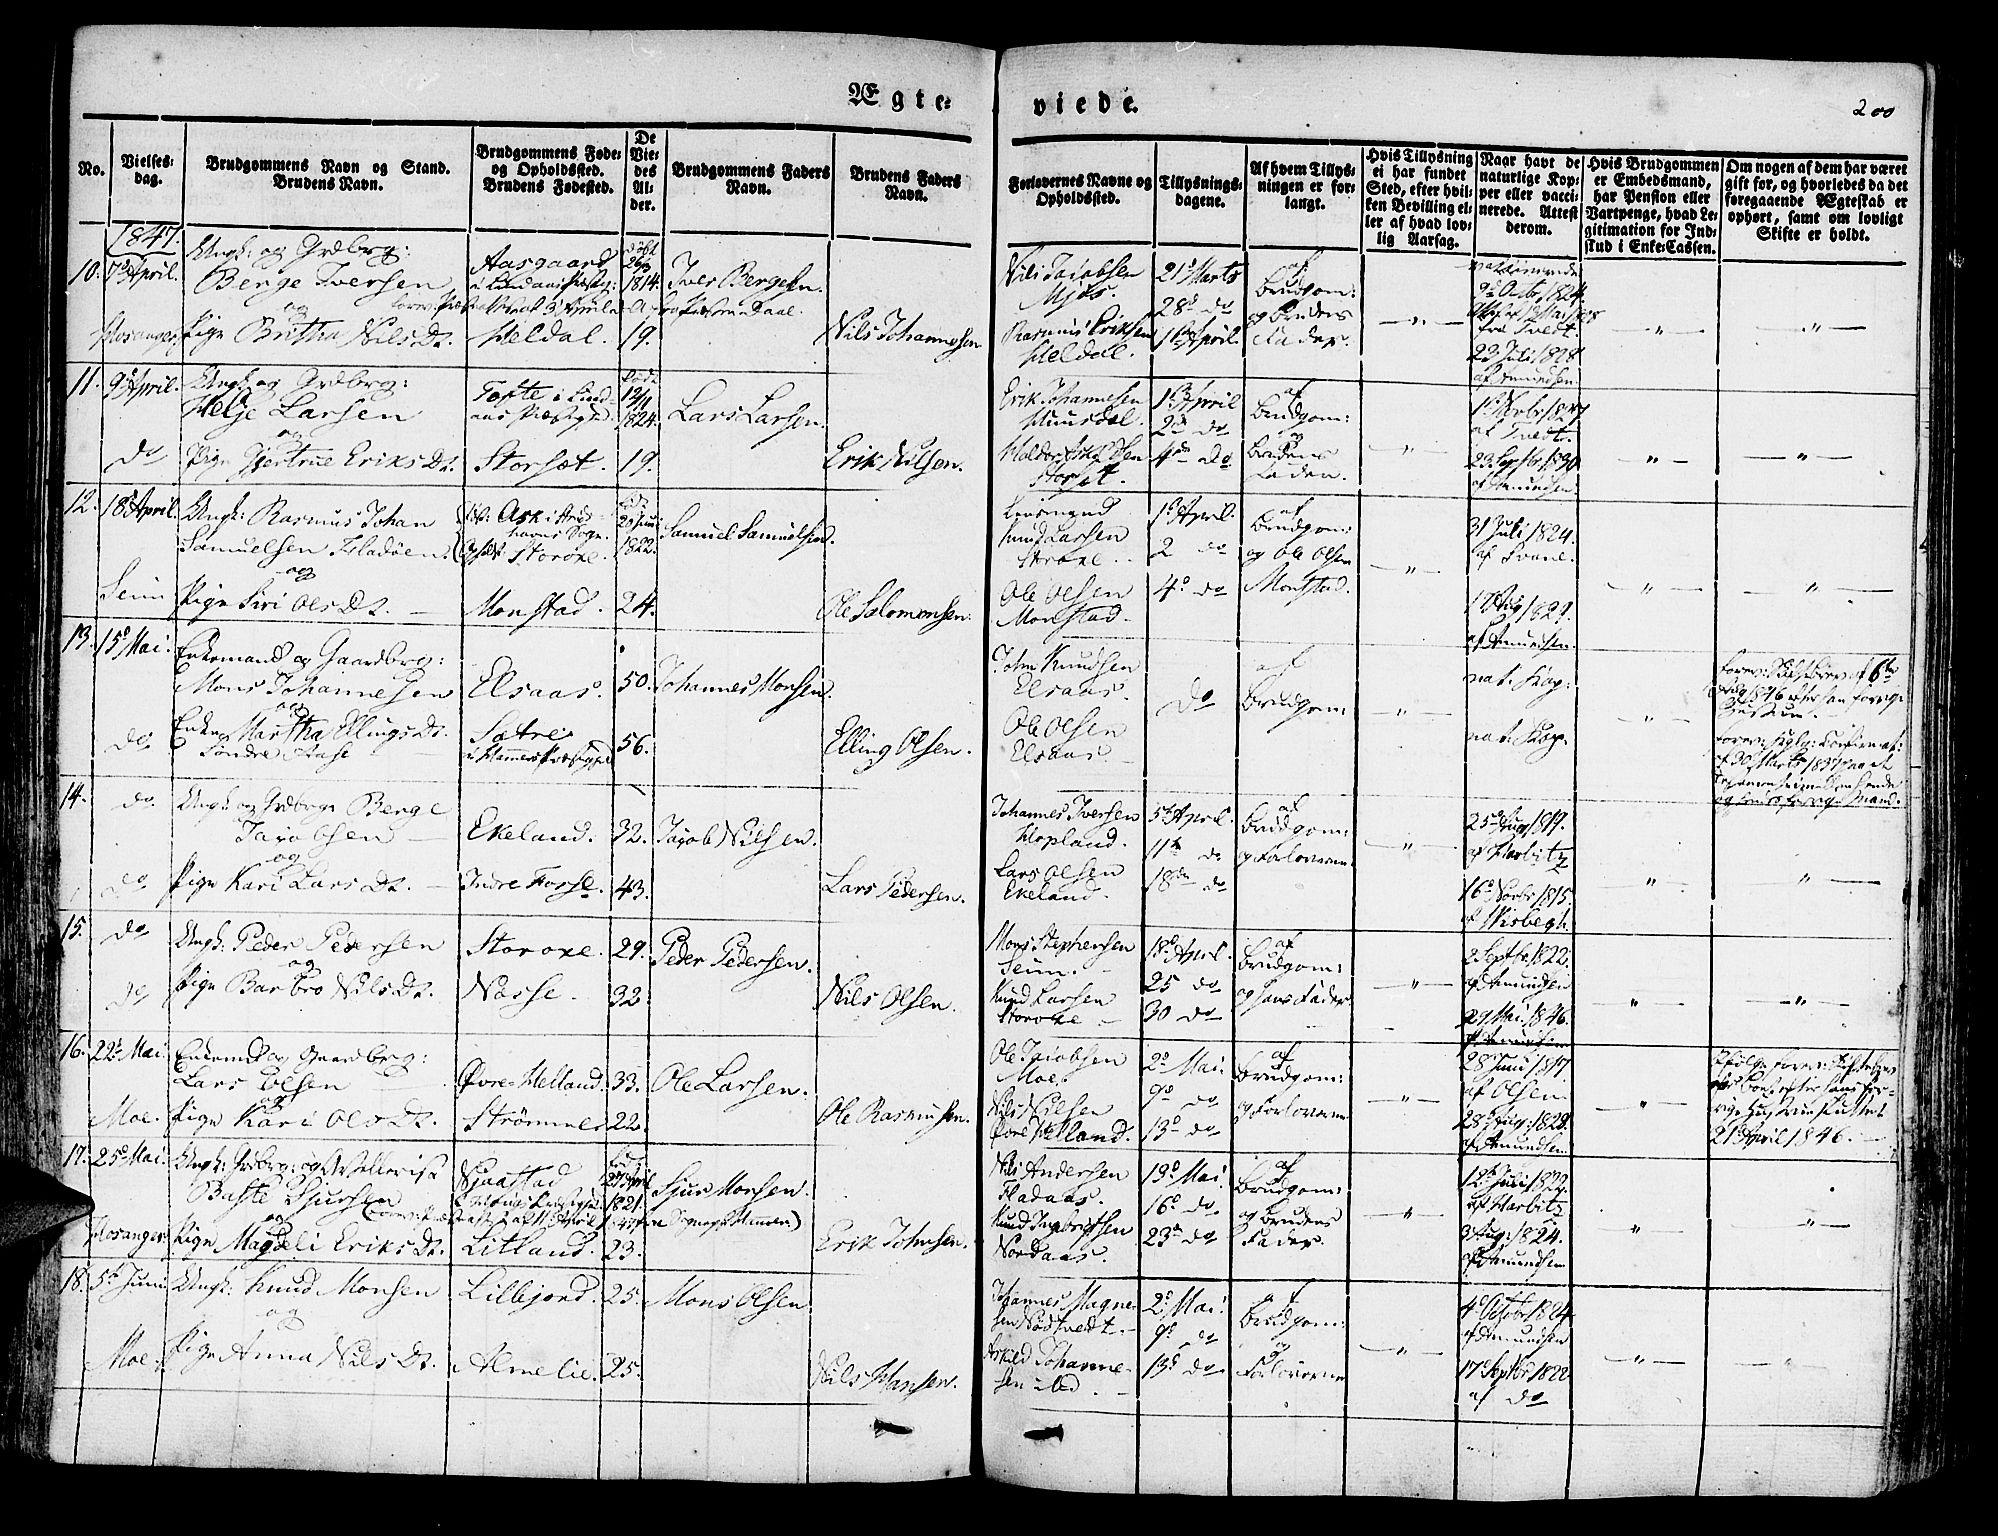 Ægte-
viede.
200
No.
Vielses-
dag.
Brudgommens Navn og Stand.
Brudens Navn.
Brudgommens Føde-
og Opholdssted.
Brudens Fødested.
De
Vie-
des
Al-
der.
Brudgommens Faders
Navn.
Brudens Faders
Navn.
Forlovernes Navne og
Opholdssted.
Tillysnings-
dagene.
Af hvem Tillys-
ningen er for-
langt.
Hvis Tillysning
ei har fundet
Sted, efter hvil-
ken Bevilling el-
ler af hvad lov-
lig Aarsag.
Naar havt de
naturlige Kop-
per eller vacci-
nerede. Attest
derom.
Hvis Brudgommen
er Embedsmand,
har Pension eller
Vartpenge, hvad Le-
gitimation for Ind-
skud i Enke-Cassen.
Om nogen af dem har været
gift før, og hvorledes da det
foregaaende Ægteskab er
ophørt, samt om lovligt
Skifte er holdt.
1847.
10. 7d April.
Ungk: og Grdbrg:
Berge Iversen
og
Pige Britha Nils Dt.
Mosanger
Aasgaard
Heldal.
1814.
19.
Iver Bergesen
Nils Johannesen
Nils Jacobsen
Mjøs.
Rasmus Eriksen
Heldal.
21d Marts
28d do
1d April.
af
Brudgom:
og Brudens
Fader.
23 Juli 1828
af Amundsen.
11. 9d April.
do
Ungk. og Grdbrg:
Helje Larsen
og
Pige Gjertrue Eriks Dt.
Tofte i Lind-
aas Præstgd.
Storset.
1824.
19.
Lars Larsen.
Erik Nilsen.
Erik Johannesen
Storset.
1d April
2d do
4de do
af
Brudgom:
og
Brudens
Fader.
af Tvedt.
23 Septbr. 1830
af Amundsen.
12. 18d April.
Seim
Ungk: Rasmus Johan
Samuelsen Fladøen
og
Pige Siri Ols Dt.
Ask i
Storoxe.
Monstad.
1822.
24.
Samuel Samuelsen.
Ole Salomonsen.
Lensmand
Knud Larsen
Storoxe.
Ole Olsen
Monstad.
1d April.
2 do
4d do
af
Brudgom:
og Ole Olsen
Monstad.
31 Juli 1824.
af
17 Aug 1829.
af Amundsen.
13. 15d Mai.
do
Enkemand og Gaardbrg:
Mons Johannesen
og
Enken Martha Ellings Dt.
Søndre Aase
Elsaas.
Sætre
i Hammers Præstegjeld
50.
56.
Johannes Monsen.
Elling Olsen.
John Knudsen
Elsaas.
Ole Olsen
Elsaas.
do
af
Brudgom:
nat: Kop:
nat: Kop.
14. do.
do
Ungk og Grdbrge Berge
Jacobsen
og
Pige Kari Lars Dt.
Ekeland.
Indre Fosse.
32.
43.
Jacob Nilsen.
Lars Pedersen.
Johannes Iversen
Hopland.
Lars Olsen
Ekeland.
5te April.
11te do
18de do
af
Brudgom:
og Forloverne
25d Aug 1819.
af Harbitz
16d Novbr 1815.
af Wisbegh.
15. do
do
Ungk. Peder Pedersen
og
Pige Barbro Nils Dt.
Storoxe.
Nosse.
29.
32.
Peder Pedersen.
Nils Olsen.
Mons Stephensen
Seim.
Knud Larsen
Storoxe
18d April.
25 do
30 do
af
Brudgom:
og hans Fader
2 Septbr. 1822.
af Amundsen
29 Mai. 1846.
af Amundsen
16. 22d Mai.
Moe.
Enkemd og Gaardbrg:
Lars Olsen
og
Pige Kari Ols Dt.
Øvre-Helland.
Strömmen
33.
22.
Ole Larsen.
Ole Rasmusen.
Ole Jacobsen
Moe.
Nils Nilsen
Øvre Helland.
2d Mai.
9d do
13d do
af
Brudgom:
og Forloverne
28 Juni 1817.
af Olsen.
28d Aug: 1828.
af Amundsen.
21d April 1846.
17. 25d Mai.
Mosanger.
Ungk: Grdbrg: og
Baste Sjursen
og
Pige Magdeli Eriks Dt.
Njaastad
Litland.
1821.
23.
Sjur Monsen.
Erik Johnsen.
Nils Andersen
Fladaas.
Knud Ingebrigtsen
Nordaas.
13d Mai.
16d do
23de do
af
Brudgom:
og Brudens
Fader.
12d Juli 1822.
af Harbitz
3 Aug: 1824.
af Amundsen
18. 5te Juni
Moe.
Ungk: Knud Monsen
og
Pige Anna Nils Dt.
Lilbjord.
Almelie.
25.
25.
Mons Olsen
Nils Hansen.
Johannes Magne-
sen Nødtvedt.
Askild Johanne-
sen
2d Mai.
9d do
13d do
af
Brudgom:
og
Forloverne
4d Octobr 1824
af Amundsen
17d Septbr 1822
af do